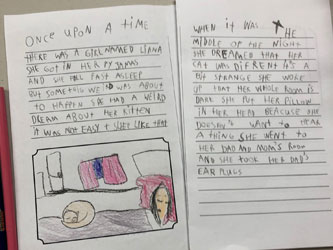 Once UPON A TIME
THERE WAS A GIRL NAMED LIANA
SHE GOT IN HER PYJAMAS
AND WE FELL FAST ASLEEP
BUT SOMETHING WAS ABOUT
TO HAPPEN SHE HAD A WEIRD
DREAM ABOUT HER KITTEN
IT WAS NOT EASY LIKE THAT
WHEN it WAS THE
MIDDLE OF THE NIGHT
SHE DREAMED THAT HER
CAT WAS DIFRENT
BUT STRANGE SHE WOKE
UP THAT HER WHOLE ROOM IS
DARK SHE PUT HER PILLOW
IN HER HEAD BECAUSE SHE
DOESN'T WANT TO HEAR
A THING SHE WENT TO
HER DAD AND MOM'S ROOM
AND SHE TOOK HER DAD'S
EAR PLUGS